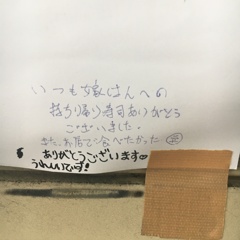 いつも嫁はんへの
持ち帰り寿司ありがとう
ございました。
また、お店で食べたかった
ありがとうございます♡
うれしいです!